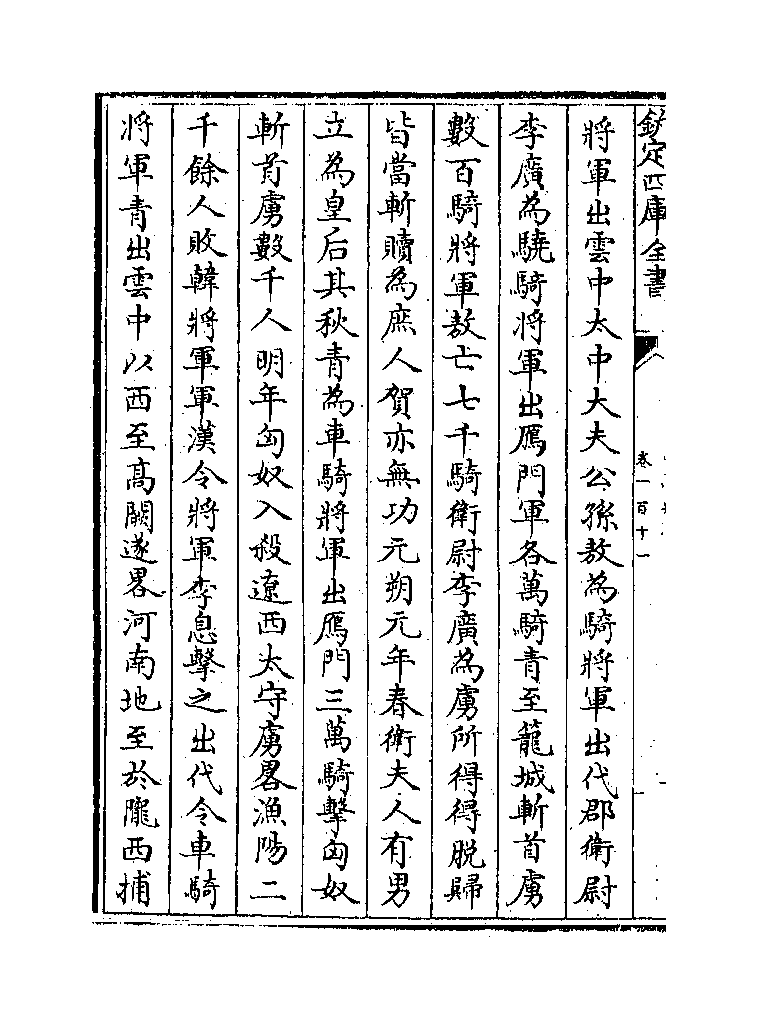 欽定四庫全書
卷一百十一
將軍出雲中太中大夫公孫敖為騎將軍出代郡衛尉
李廣為驍騎將軍出鴈門軍各萬騎青至籠城斬首虜
數百騎將軍敖亡七千騎衛尉李廣為虜所得得脫歸
皆當斬贖為庶人賀亦無功元朔元年春衛夫人有男
立為皇后其秋青為車騎將軍出鴈門三萬騎擊匈奴
斬首虜數千人明年匈奴入殺遼西太守虜畧漁陽二
千餘人敗韓將軍軍漢令將軍李息擊之出代令車騎
將軍青出雲中以西至高闕遂畧河南地至於隴西捕